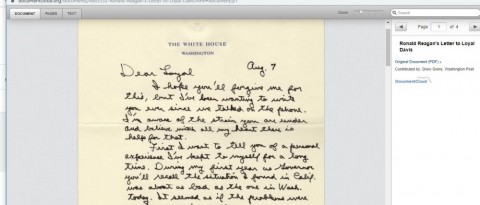 DOCUMENT PAGES TEXT
Zoom
Search
Page 1 of 4
Ronald Reagan's Letter to Loyal
Davis
Original Document (PDF) »
Contributed by: Washington Post
DocumentCloud
THE WHITE HOUSE
WASHINGTON
Aug. 7
Dear Loyal
I hope you'll forgive me for
this, but I've been wanting to write
you ever since we talked on the phone.
I'm aware of the strain you are under
and believe with all my heart there is
help for that.
First I want to tell you of a personal
experience I've kept to myself for a long
time. During my first year as Governor
you'll recall the situation I found in Calif.
was about as bad as the one in Wash.
today. It seemed as if the problems were